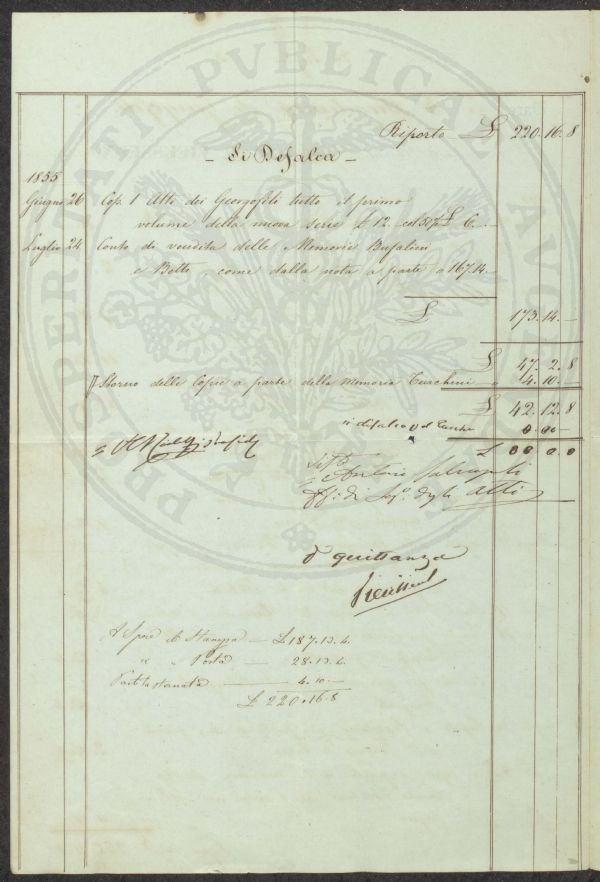 PROSPERITATI PVBLICAE AVG
Riporto £ 220. 16. 8
- Si Defalca -
1855
Giugno 26 Cop. 1 Atti dei Georgofili tutto il primo
volume della nuova serie £ 12 col 50% £ 6. -
Luglio 24 Conto di vendita delle Memorie Bufalini
e Betto, come dalla nota a parte a 167.14. -
£ 173. 14. -
£ 47. 2. 8
Storno delle Copie a parte della Memoria Turchini 4. 10. -
£ 42. 12. 8
0. 00 -
£ 00 0. 0
degli Atti
quittanza
Spese di Stampa - £ 187. 13. 4.
" " Posta - 28. 13. 4.
Partita stornata - 4. 10. -
£ 220. 16. 8